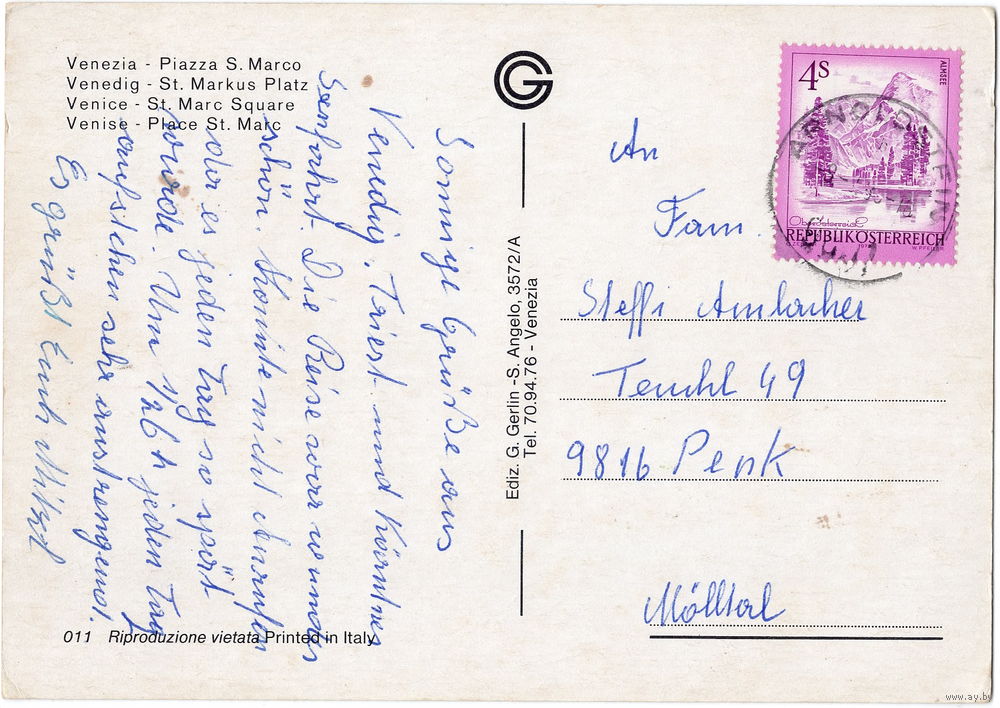 Venezia - Piazza S. Marco
Venedig - St. Markus Platz
Venice - St. Marc Square
Venise - Place St. Marc
Sonnige Grüße aus
Venedig, Triest und Kärntner
Seenfahrt. Die Reise war wunder
schön. Konnte nicht Anrufen
da es jeden Tag so spät
wurde. Um 1/2 6 h jeden Tag
aufstehen sehr anstrengend.
Es grüßt Euch
011 Riproduzione vietata Printed in Italy
G
Ediz. G. Gerlin -S. Angelo, 3572/A
Tel. 70.94.76 - Venezia
4S
ALMSEE
Oberösterreich
REPUBLIK ÖSTERREICH
ARNOLDSTEIN
An
Fam.
Steffi Ambacher
49
9816 Penk
Mölltal
www.ay.by